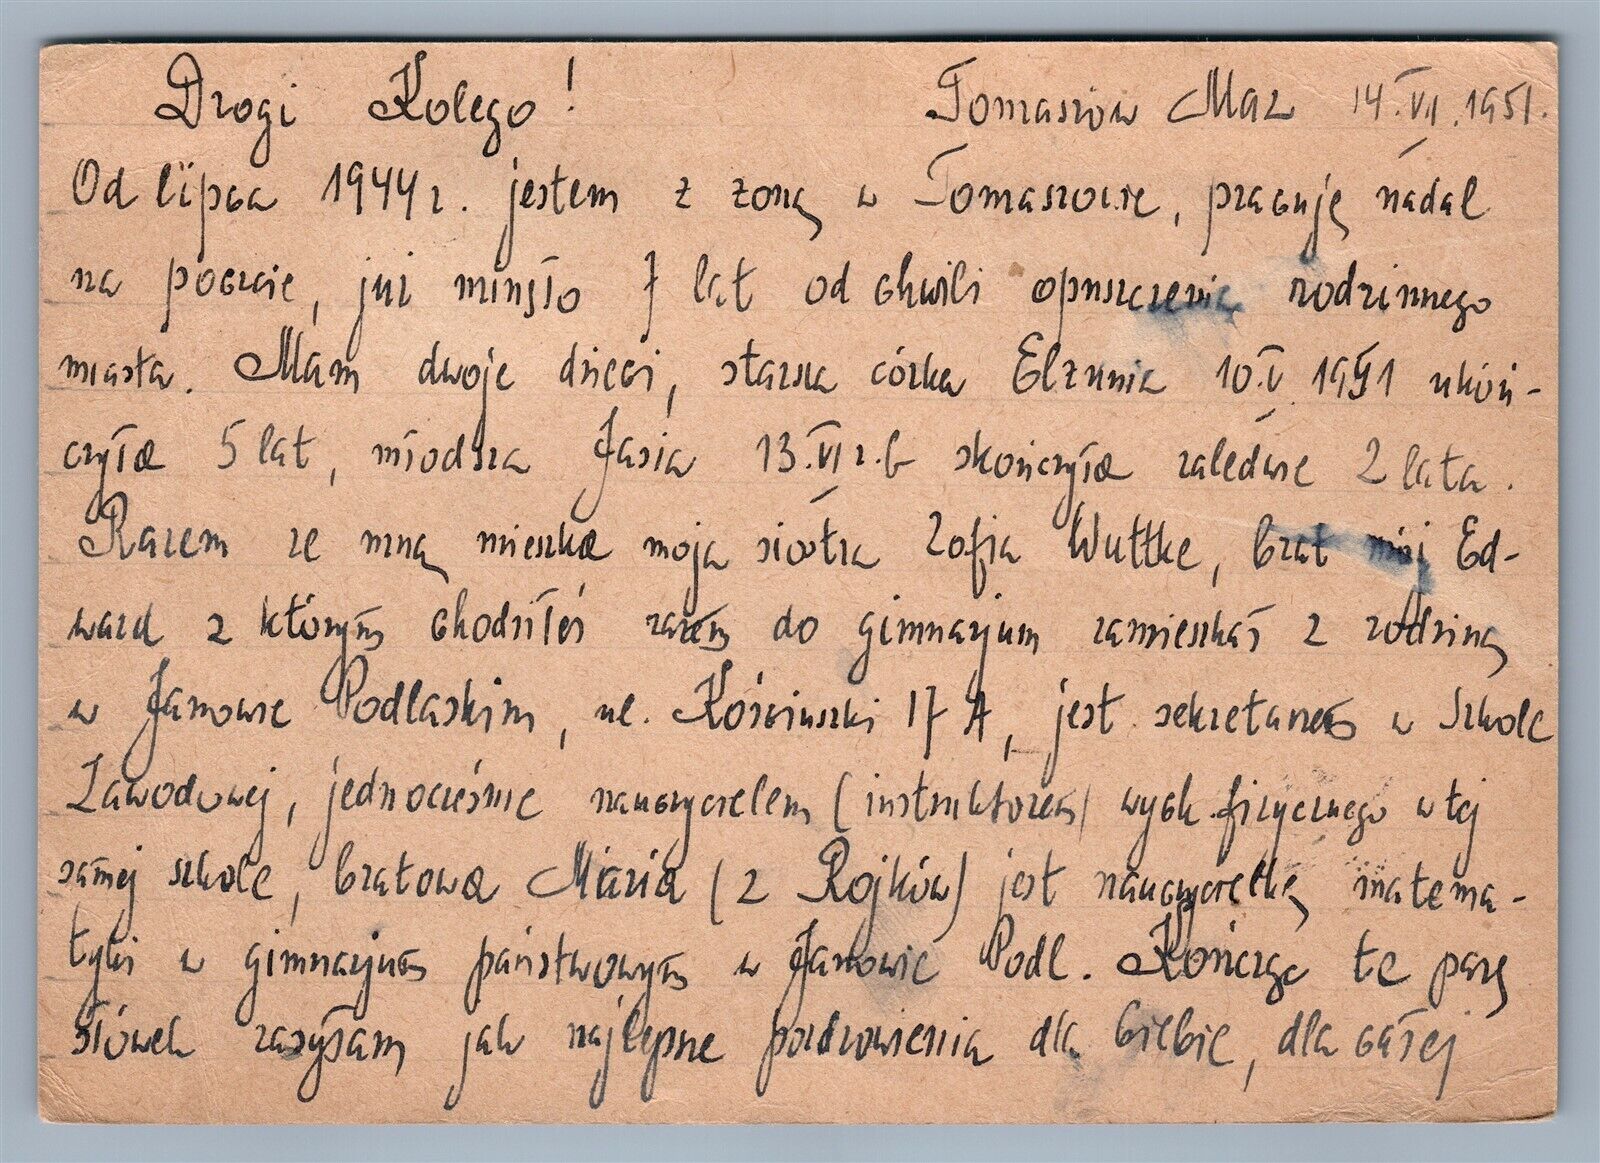 Drogi Kolego! Tomaszów Maz 14.VII.1951.
Od lipca 1944 r. jestem z żoną w Tomaszowie, pracuję nadal
na poczcie, już minęło 7 lat od chwili opuszczenia rodzinnego
miasta. Mam dwoje dzieci, starsza córka Elżunia 10.V 1951 ukoń-
czyła 5 lat, młodsza Jasia 13.VI r.b skończyła zaledwie 2 lata.
Razem ze mną mieszka moja siostra Zofia Wuttke, brat mój Ed-
ward z którym chodziłeś razem do gimnazjum zamieszkał z rodziną
w Janowie Podlaskim, ul. Kościuszki 17 A, jest sekretarzem w Szkole
Zawodowej, jednocześnie nauczycielem (instruktorem) wych. fizycznego w tej
samej szkole, bratowa Maria (z Rojków) jest nauczycielką matema-
tyki w gimnazjum państwowym w Janowie Podl. Kończąc te parę
słówek zasyłam jak najlepsze pozdrowienia dla Ciebie, dla całej